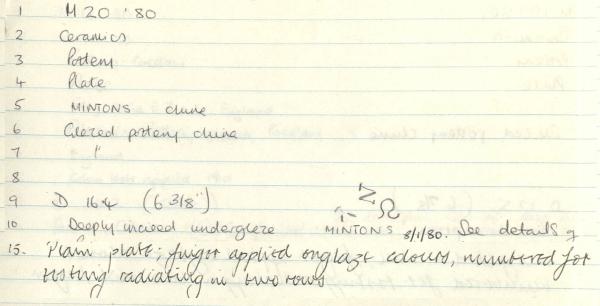 1 M 20 '80
2 Ceramics
3 Pottery
4 Plate
5 MINTONS china
6 Glazed pottery china
7 "
8
9 D 164 (6 3/8")
10 Deeply incised underglaze MINTONS 8/1/80. See details of
15. Plain plate; finger applied onglaze colours, numbered for
testing radiating in two rows